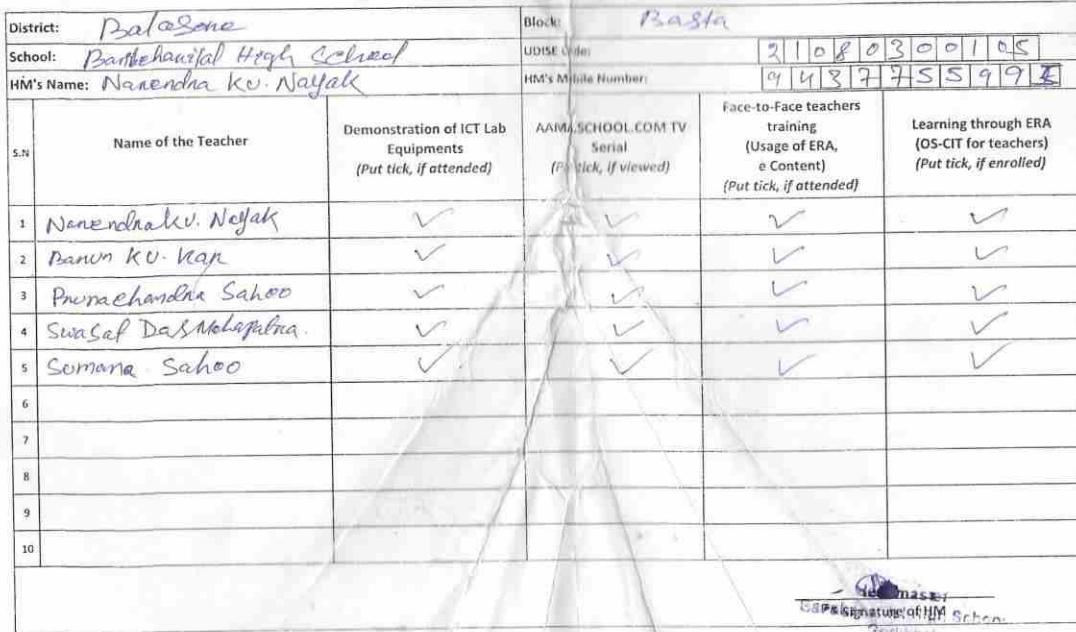 District: Balasore Block: Basta
School: High School UDISE Code: 21080300105
HM's Name: Narendra Ku. Nayak HM's Mobile Number: 943775599
S.N Name of the Teacher Demonstration of ICT Lab Equipments (Put tick, if attended) AAMASCHOOL.COM TV Serial (Put tick, if viewed) Face-to-Face teachers training (Usage of ERA, e Content) (Put tick, if attended) Learning through ERA (OS-CIT for teachers) (Put tick, if enrolled)
1 Narendra Ku. Nayak ✓ ✓ ✓ ✓
2 Barun Ku. Kar ✓ ✓ ✓ ✓
3 Purnachandra Sahoo ✓ ✓ ✓ ✓
4 Swasat Das Mohapatra. ✓ ✓ ✓ ✓
5 Sumana Sahoo ✓ ✓ ✓ ✓
6
7
8
9
10
signature of HM